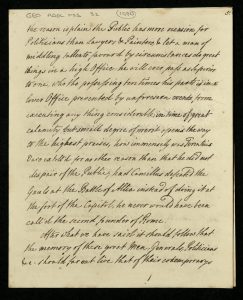 GEO ADDL MSS 32
5.
the reason explained the Public has more occasion for
Politicians than Lawyers & Painters, & let a man of
middling talents favored by circumstances do great
things in a high Office, he will ever pass as superior
to one, who tho' possessing ten times his parts is in a
lower Office prevented by unforeseen events, from
executing any thing considerable. in time of great
calamity but small degree of merit opens the way
to the highest praises, how immensely was Terentius
Varro extoll'd for no other reason than that he did not
despair of the Public, had Camillus defeated the
Gauls at the Battle of Allia instead of doing it at
the foot of the Capitol, he never would have been
call'd the second founder of Rome.
After what we have said it should follow that
the memory of these great Men, Generals, Politicians
&c. should far out live, that of their cotemporary